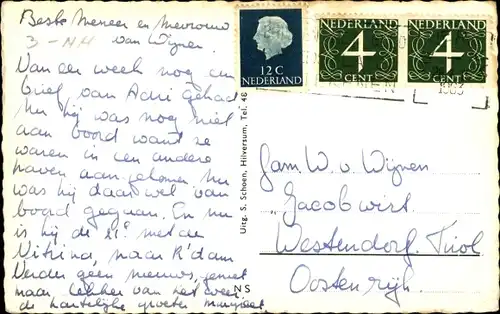 Beste Meneer en Mevrouw
3-NH van Wijnen.
Van der week nog een
brief van Adri gehad
Nu hij was nog niet
aan boord want ze
waren in een andere
haven aangekomen. Nu
was hij daar wel van
boord gegaan. En nu
is hij de 11e met de
Vitrina, naar R'dam
Verder geen nieuws, geniet
maar lekker van het weer.
de hartelijke groeten
12 C
NEDERLAND
NEDERLAND
4
CENT
NEDERLAND
4
CENT
Uitg. S. Schoen, Hilversum, Tel. 48
NS
Fam. W. v. Wijnen
"Jacobwirt"
Westendorf Tirol
Oostenrijk.